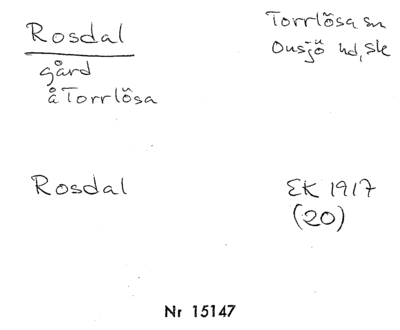 Rosdal
gård
å Torrlösa
Torrlösa sn
Onsjö hd, Sk
Rosdal
EK 1917
(20)
Nr 15147